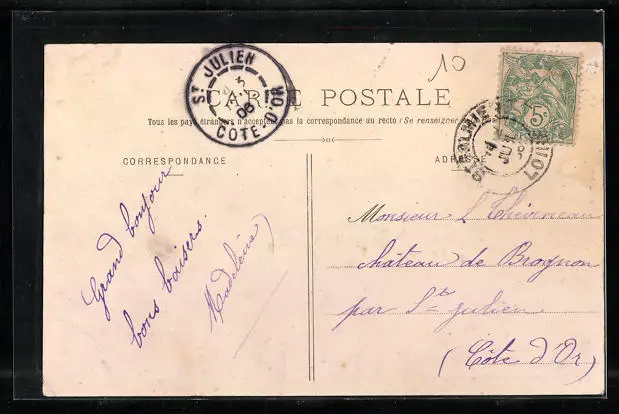 ST JULIEN
3
08
CÔTE-D'OR
10
CARTE POSTALE
Tous les pays étrangers n'acceptent pas la correspondance au recto (Se renseigner
CORRESPONDANCE
ADRESSE
5c
Grand bonjour
bons baisers.
Madeleine
Monsieur L Thévineau
château de Brognon
par Ste Julien
(Côte d'Or)